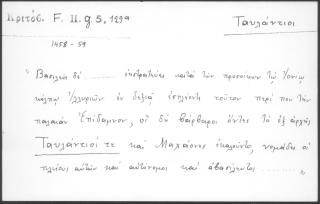 Κριτόβ. F. II. g 5, 129α
Ταυλάντιοι
1458-59
"Βασιλεὺς δὲ .......... ἐκστρατεύει κατὰ τῶν προσοίκων τῷ Ἰονίῳ
κόλπῳ Ἰλλυριῶν ἐν δεξιᾷ ἐσπλέοντι τοῦτον περί που τὴν
παλαιὰν Ἐπίδαμνον, οἳ δὴ βάρβαροι ὄντες τὸ ἐξ ἀρχῆς
Ταυλάντιοί τε καὶ Μακρῶνες ἐκαλοῦντο, νομάδες οἱ
πλείους αὐτῶν καὶ αὐτόνομοι καὶ ἀβασίλευτοι ..........."